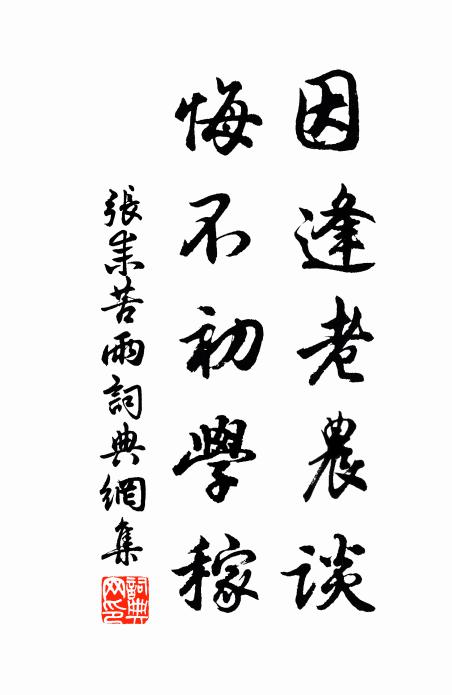 因逢老農談
悔不初學稼
張耒苦雨詞典網集
詞典網印